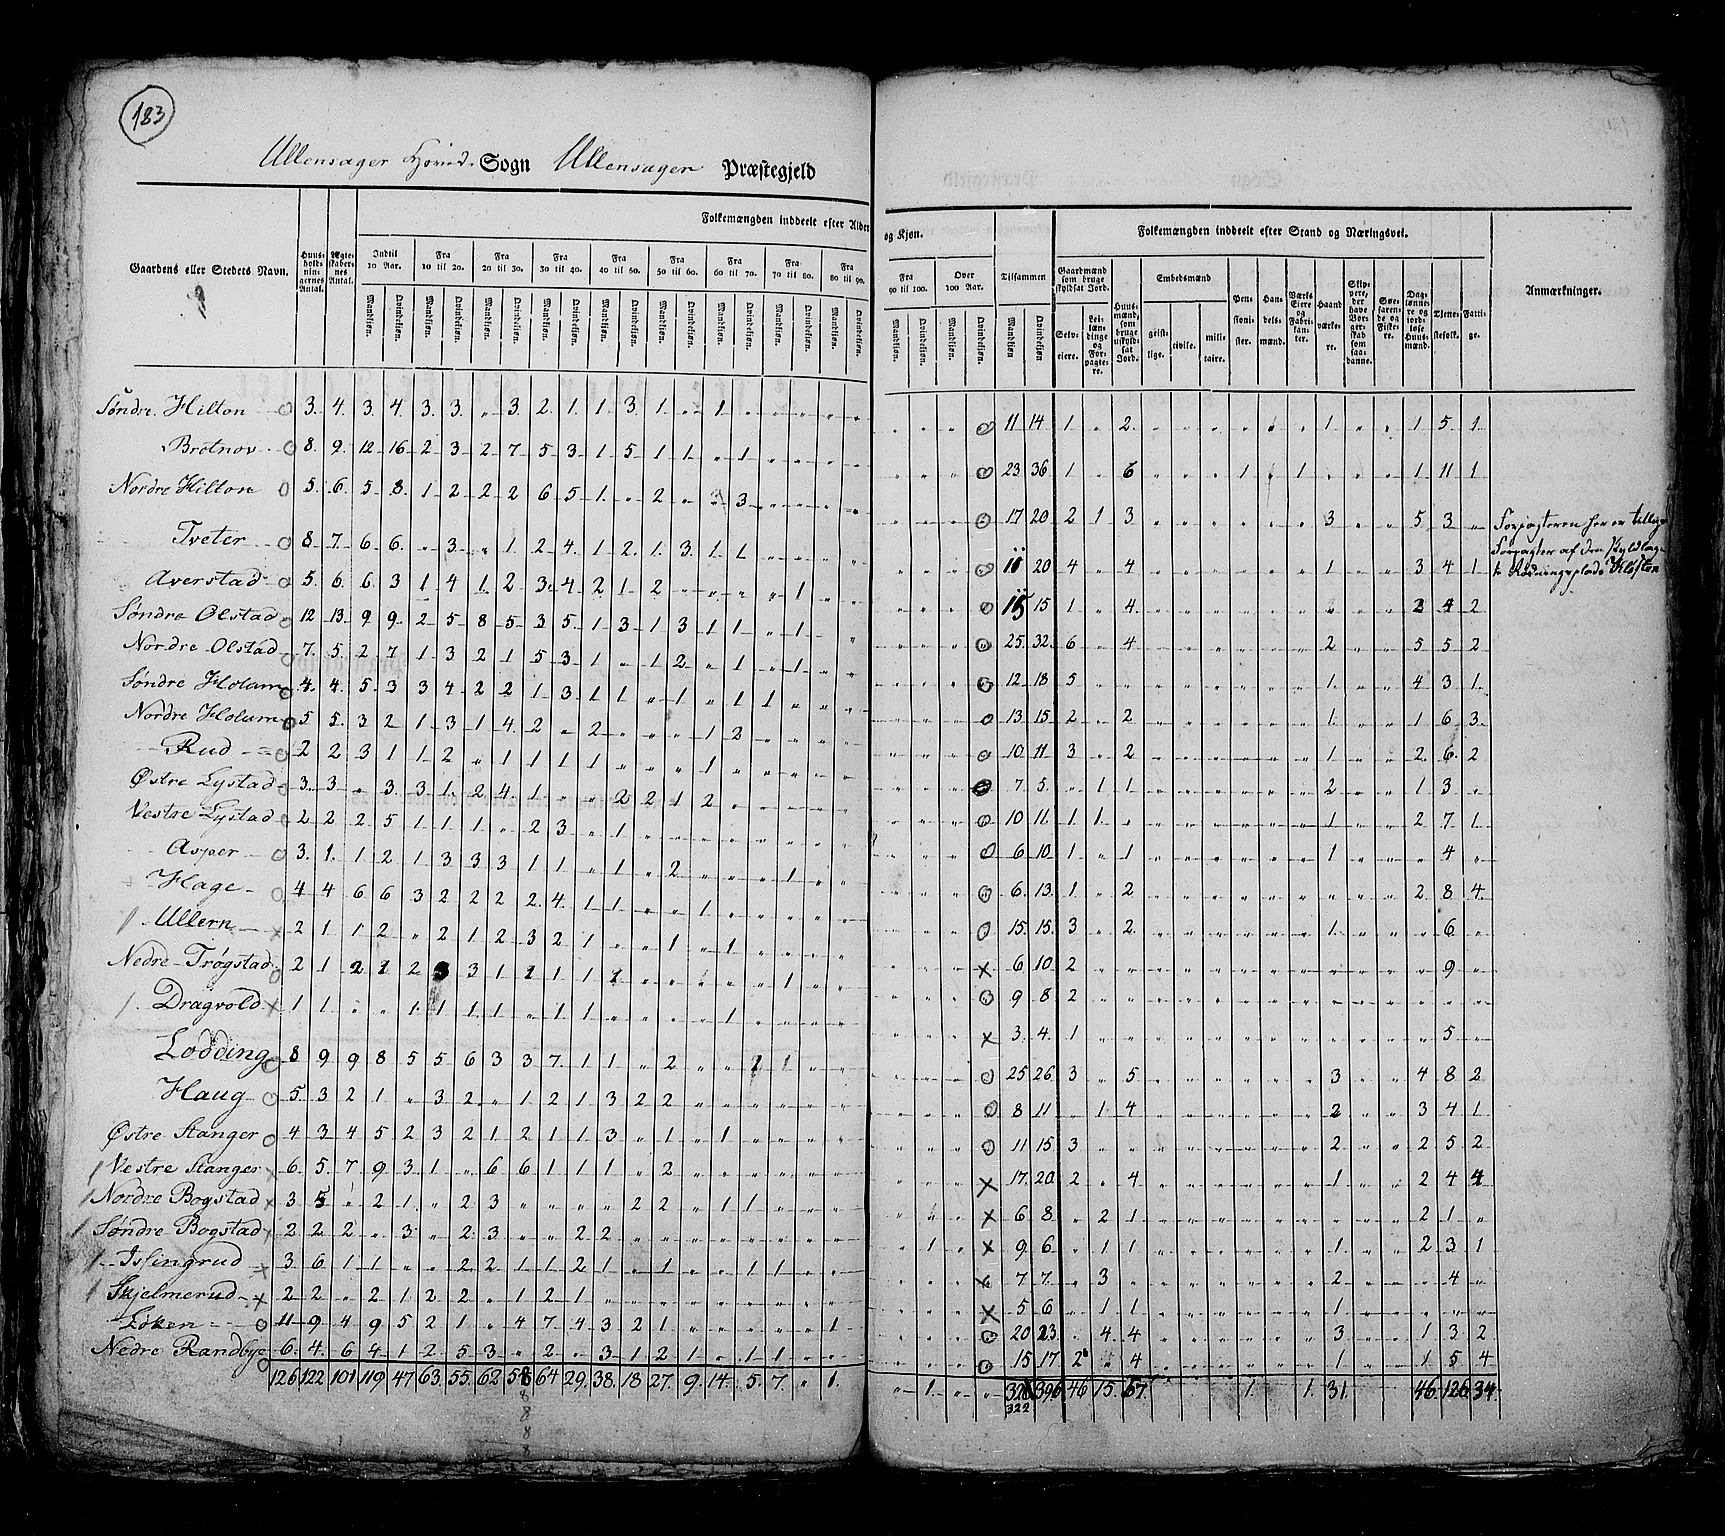 183
Ullensager Hoved- Sogn Ullensager Præstegjeld
Folkemængden inddeelt efter Alder og Kjøn. Folkemængden inddeelt efter Stand og Næringsvei.
Gaardens eller Stedets Navn. Huusholdningernes Antal. Ægteskabernes Antal. Indtil 10 Aar. Fra 10 til 20. Fra 20 til 30. Fra 30 til 40. Fra 40 til 50. Fra 50 til 60. Fra 60 til 70. Fra 70 til 80. Fra 80 til 90. Fra 90 til 100. Over 100 Aar. Tilsammen Gaardmænd som bruge skyldsat Jord. Huusmænd, som bruge uskyldsat Jord. Embedsmænd Pensionister. Handelsmænd. Værks Eiere og Fabrikanter. Haandværkere. Skippere, der have Borgerskab som saadanne. Søefarende og Fiskere. Daglønnere og jordløse Huusmænd. Tjenestefolk. Fattige. Anmærkninger.
Mandkjøn. Qvindekjøn. Selveiere. Leilændinge og Forpagtere. geistlige. civile. militaire.
Søndre Hilton 3. 4. 3. 4. 3. 3. „ 3. 2. 1. 1. 3. 1. „ 1. „ „ „ „ „ „ „ „ 11 14 1 „ 2. „ „ „ „ „ „ 1 „ „ 1 5 1
Brotnov 8. 9. 12 16 2 3 2 7 5 3 1 5 1 1 „ 1 „ „ „ „ „ „ „ 23 36 1 „ 6 „ „ „ 1 „ 1 „ „ „ 1 11 1
Nordre Hilton 5. 6. 5 8. 1 2 2 2 6 5 1. „ 2 „ 3 „ „ „ „ „ „ „ 17 20 2 1 3 „ „ „ „ „ „ 3 „ „ 5 3 „ Forpagteren her er tillige
Tveter 8 7 6 6 „ 3 „ 1 2 4 1 2. 1. 3 1 1 „ „ „ „ „ „ „ 20 4 „ 4 „ „ „ „ „ „ 1 „ „ 3 4 1 Forpagter af den
Averstad 5. 6 6 3 1 4 1 2 3 4 2 1 2 „ „ „ „ 1 „ „ „ „ „ 15 1 „ 4 „ „ „ „ „ „ „ „ „ 2 4 2 Rødningsplads Kløften
Søndre Olstad 12 13 9 9 2 5 8 5 3 5 1 3 1 3 1 1 „ 1 „ „ „ „ „ 25 32 6 „ 4 „ „ „ „ „ „ 2 „ „ 5 5 2
Nordre Olstad 7. 5 2 7 1 3 2 1 5 3 1 „ 1 2 „ 1 „ 1 „ „ „ „ „ 12 18 5 „ „ „ „ „ „ „ „ 1 „ „ 4 3 1
Søndre Holum 4. 4. 5 3 3 4 2 2 1 3 1 1 „ 1 „ 1 1 „ „ „ „ „ „ 13 15 2 „ 2 „ „ „ „ „ „ 1 „ „ 1 6 3.
Nordre Holum 5 5. 3 2 1 3 1 4 2 „ 2 „ „ „ 1 2 „ „ „ „ „ „ „ 10 11 3 „ 2 „ „ „ „ „ „ 1 „ „ 2 6 2
Rud 2 2 3 1 1 2 „ 1 1 1 1 „ „ „ 1 „ „ „ „ „ „ „ „ 7 5 „ 1 1 „ „ „ „ „ „ 2 „ „ 1 3 „
Østre Lystad 3. 3 „ 3 3 1 2 4 1 „ „ 2 2 1 2 „ „ „ „ „ „ „ „ 10 11 1 1 „ „ „ „ „ „ „ 1 „ „ 2 7 1
Vestre Lystad 2 2 2 5 1 1 1 „ 2 3 „ 1 „ „ „ „ „ „ „ „ „ „ „ 6 10 1 „ 1 „ „ „ „ „ „ 1 „ „ „ 4 „
Asper 3. 1. 1 2 1 3 3 3 1 1 „ 1 „ 2 „ „ „ 1 „ „ „ „ „ 6. 13. 1 „ 2 „ „ „ „ „ „ „ „ „ 2 8 4
Hage 4 4 6 6 3 2 2 2 2 4 1 1 „ „ 1 „ „ „ „ „ „ „ „ 15. 15. 3 „ 2 „ „ „ „ „ „ 1 „ „ „ 6 „
Ullern 2 1 1 2 „ 2 1 2 3 2 1 „ „ 1 „ 1 „ „ „ „ „ „ „ 6 10 2 „ „ „ „ „ „ „ „ „ „ „ „ 9 „
Nedre Trøgstad 2 1 2 1 2 3 3 1 1 1 1 1 „ „ „ „ „ 1 „ „ „ „ „ 9 8 2 „ „ „ „ „ „ „ „ „ „ „ „ „ „
Dragvold 1 1 „ „ 1 1 1 1 „ 1 1 „ „ „ „ 1 „ „ „ „ „ „ „ 3. 4. 1 „ „ „ „ „ „ „ „ „ „ „ „ 5 „
Lodding 8 9 9 8 5 5 6 3 3 7 1 1 „ 2 „ „ 1 1 „ „ „ „ „ 25 26 3 „ 5 „ „ „ „ „ „ 3 „ „ 4 8 2
Haug 5. 3 2 1 „ 3 2 „ 1 2 1 3 2 2 „ „ „ „ „ „ „ „ „ 8 11 „ 1 4 „ „ „ „ „ „ 2 „ „ 3 4 1
Østre Stanger 4 3 4 5 2 3 2 1 2 1 1 3 „ 1 „ 1 „ „ „ „ „ „ „ 11 15 3 „ „ „ „ „ „ „ „ 2 „ „ 2 5 2
Vestre Stanger 6. 5. 7 9 3 1 „ 6 6 1 1 1 „ 2 „ „ „ „ „ „ „ „ „ 17. 20 2 „ 4 „ „ „ „ „ „ 1 „ „ 2 4 4
Nordre Bogstad 3 5 „ 2 1 „ 2 3 „ „ „ „ 2 2 „ 1 1 „ „ „ „ „ „ 6 8 „ 2 1 „ „ „ „ „ „ „ „ „ 2 1 „
Søndre Bogstad 2 2 2 „ 3 „ 2 3 „ „ 2 2 „ „ „ „ „ „ „ „ „ 1 „ 9 6 „ 1 1 „ „ „ „ „ „ 1 „ „ 2 3 1
Islingrud 3 6 1 1 „ „ 2 2 1 1 2 1 „ 1 „ „ 1 1 „ „ „ „ „ 7 7 „ 3 „ „ „ „ „ „ „ 2 „ „ „ 4 „
Skjelmerud 2 2 „ 2 1 2 2 „ 1 2 1 „ „ „ „ „ „ „ „ „ „ „ „ 5 6 „ 1 1 „ „ „ „ „ „ 1 „ „ „ „ „
Løken 11 9 4 9 5 2 1 „ 4 7 4 3 2 1 „ „ „ „ „ 1 „ „ „ 20 23 „ 4 4 „ „ „ „ „ „ 3 „ „ 1 3 2
Nedre Randbye 6. 4. 6 4 1 2 5 3 „ 2 „ 3 1 2 1 „ 1 1 „ „ „ „ „ 15 17 2 „ 4 „ „ „ „ „ „ 1 „ „ 1 5 4
126 122 101 119 47 63 55 62 58 64 29 38 18 27. 9. 14. 5. 7. „ 1. „ 1. „ „ 396 46 15. 67. 1. 1. 31. 46 126 34
322
8
8
8